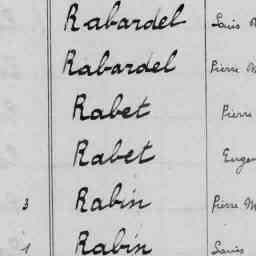 Rabardel Louis
Rabardel Pierre M
Rabet Pierre
Rabet Eugen
3 Rabin Pierre M
1 Rabin Louis